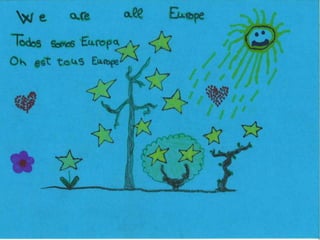 We are all Europe
Todos somos Europa
On est tous Europe